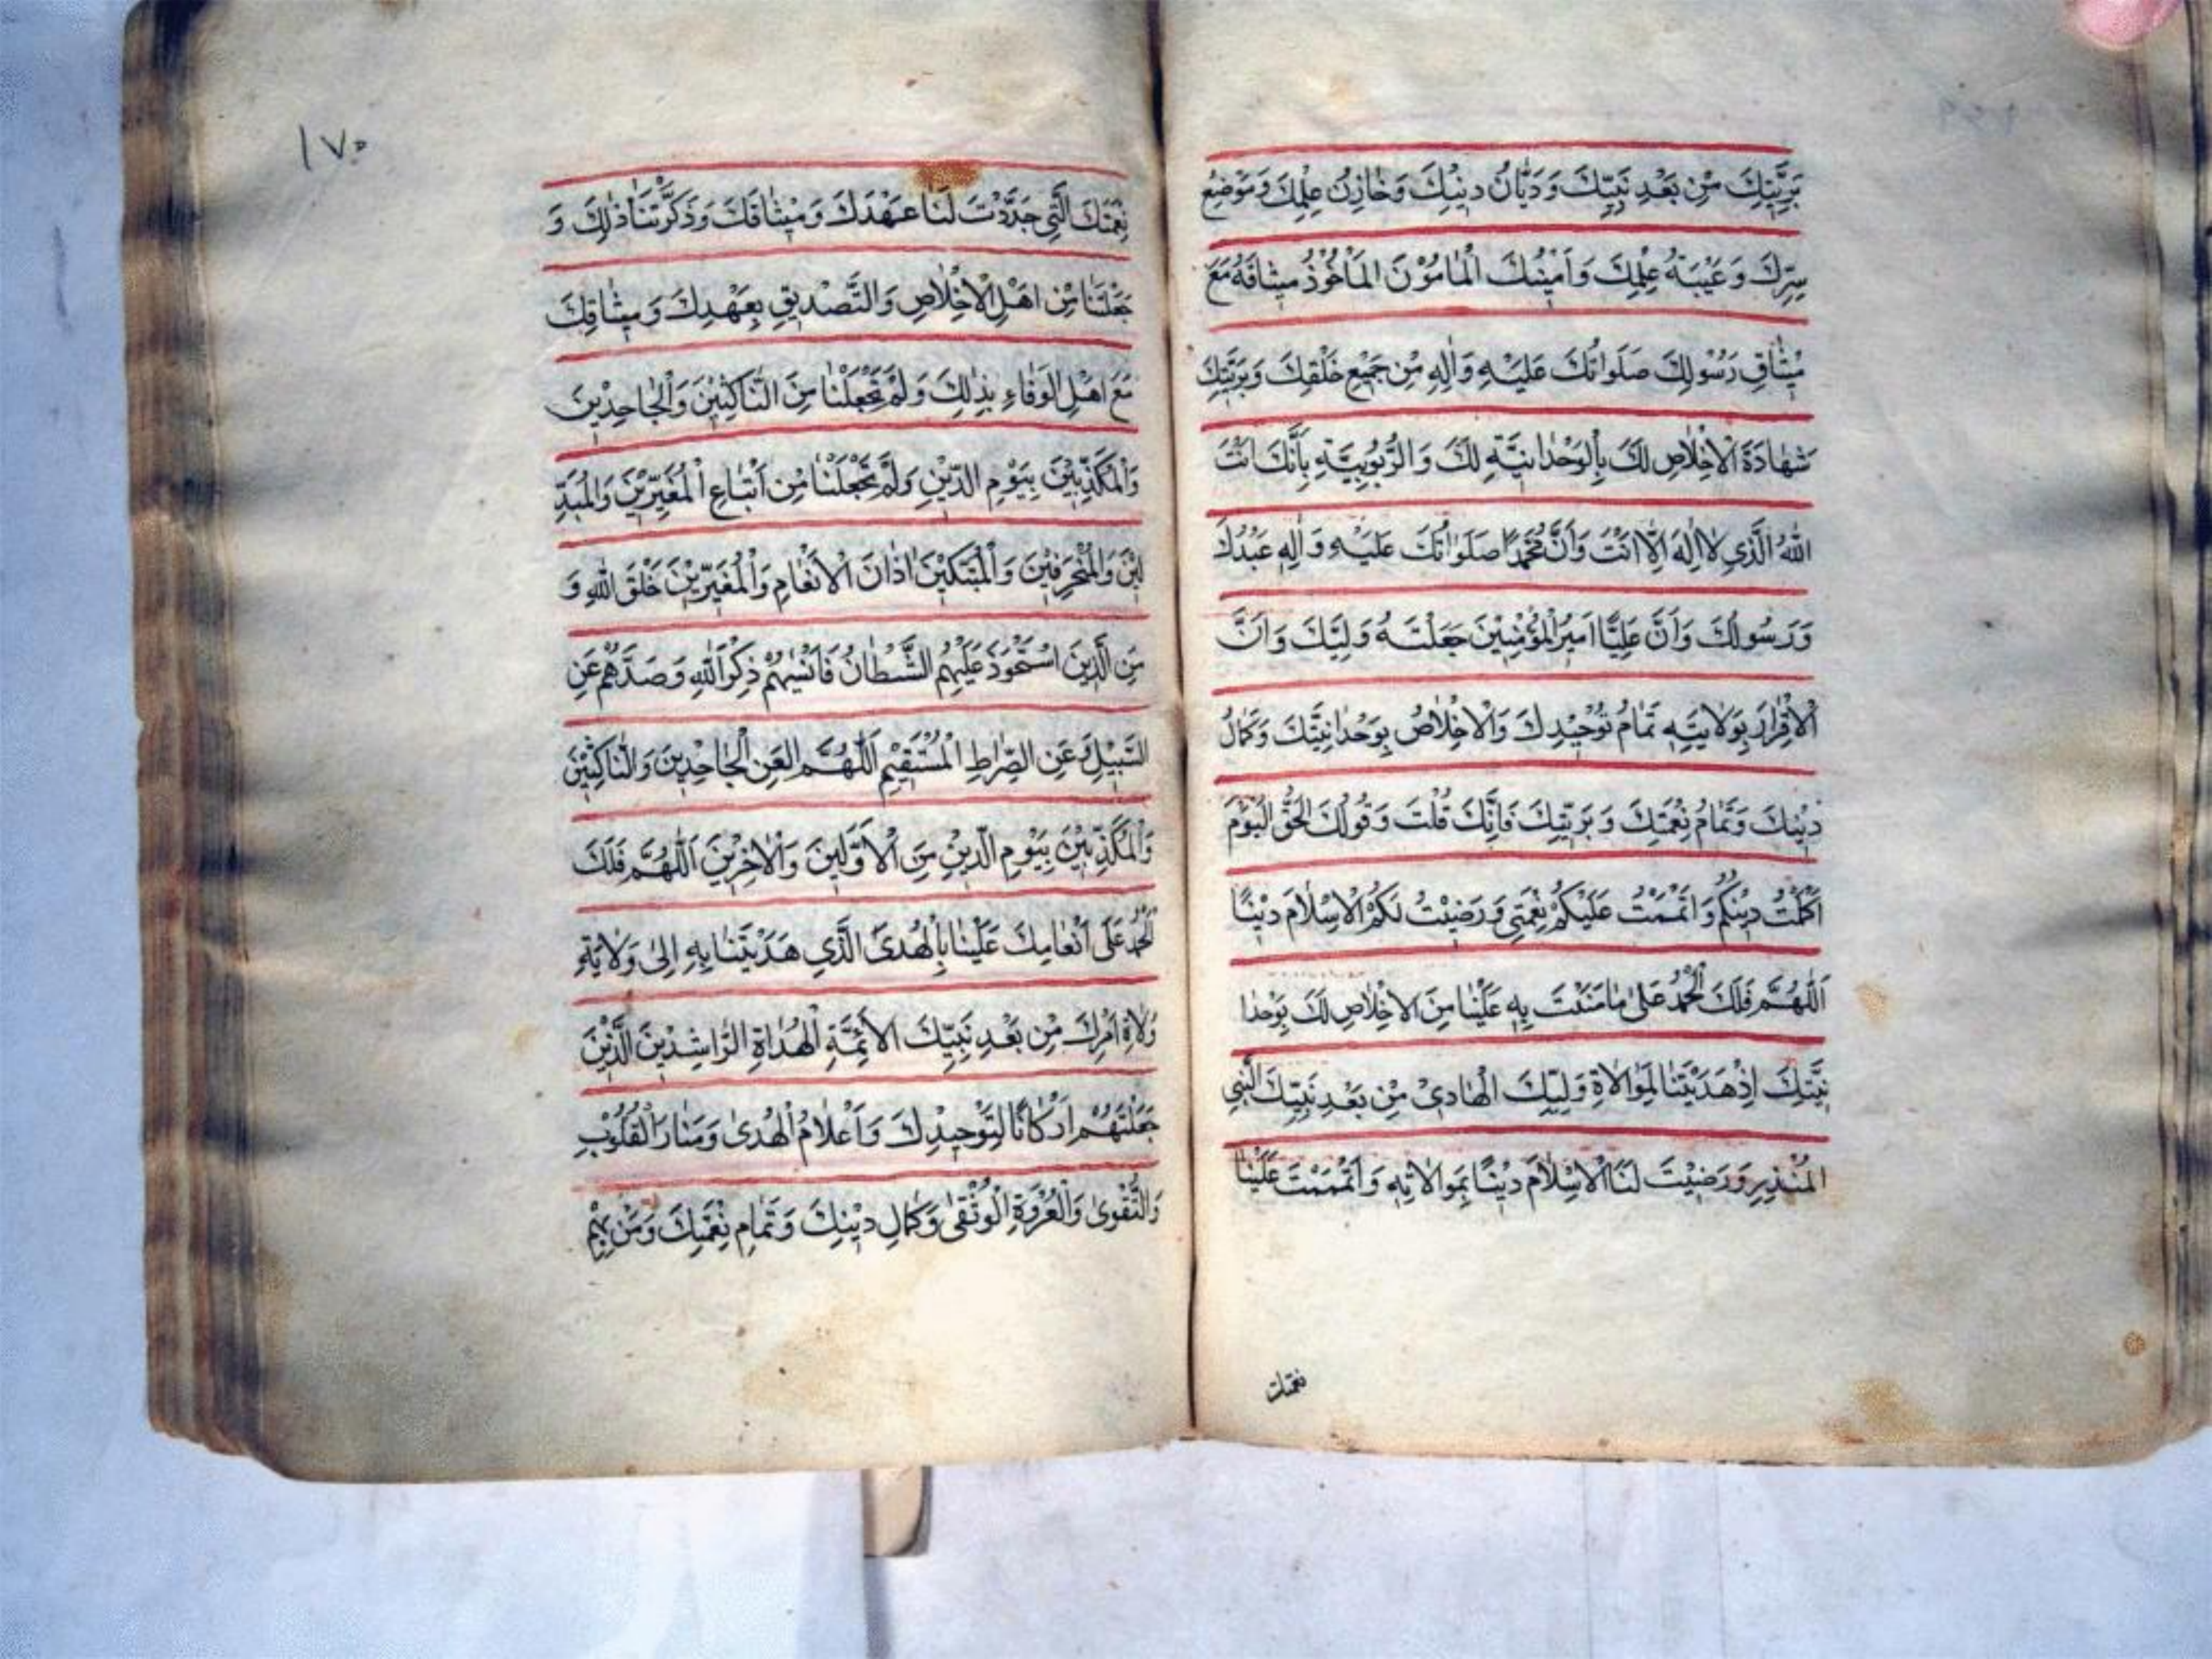 بَرِيَّتِكَ مِنْ بَعْدِ نَبِيِّكَ وَدَيَّانُ دِينِكَ وَخَازِنُ عِلْمِكَ وَمَوْضِعُ
سِرِّكَ وَعَيْبَةُ عِلْمِكَ وَاَمِينُكَ الْمَامُوْنَ الْمَاْخُوْذُ مِيثَاقَهُ مَعَ
مِيْثَاقِ رَسُوْلِكَ صَلَوَاتُكَ عَلَيْهِ وَاٰلِهِ مِنْ جَمِيْعِ خَلْقِكَ وَبَرِيَّتِكَ
شَهَادَةَ الْاِخْلَاصِ لَكَ بِالْوَحْدَانِيَّةِ لَكَ وَالرُّبُوبِيَّةِ بِاَنَّكَ اَنْتَ
اللّٰهُ الَّذِي لَا اِلٰهَ اِلَّا اَنْتَ وَاَنَّ مُحَمَّدًا صَلَوَاتُكَ عَلَيْهِ وَاٰلِهِ عَبْدُكَ
وَرَسُولُكَ وَاَنَّ عَلِيًّا اَمِيْرَ الْمُؤْمِنِيْنَ جَعَلْتَهُ وَلِيَّكَ وَاَنَّ
الْاِقْرَارَ بِوَلَايَتِهِ تَمَامُ تَوْحِيْدِكَ وَالْاِخْلَاصُ بِوَحْدَانِيَّتِكَ وَكَمَالُ
دِيْنِكَ وَتَمَامُ نِعْمَتِكَ وَبَرِيَّتِكَ فَاِنَّكَ قُلْتَ وَقَوْلُكَ الْحَقُّ الْيَوْمَ
اَكْمَلْتُ دِيْنَكُمْ وَاَتْمَمْتُ عَلَيْكُمْ نِعْمَتِي وَرَضِيْتُ لَكُمُ الْاِسْلَامَ دِيْنًا
اَللّٰهُمَّ فَلَكَ الْحَمْدُ عَلٰى مَا مَنَنْتَ بِهِ عَلَيْنَا مِنَ الْاِخْلَاصِ لَكَ بِوَحْدَا
نِيَّتِكَ اِذْ هَدَيْتَنَا لِمُوَالَاةِ وَلِيِّكَ الْهَادِيْ مِنْ بَعْدِ نَبِيِّكَ النَّبِيِّ
الْمُنْذِرِ وَرَضِيْتَ لَنَا الْاِسْلَامَ دِيْنًا بِمُوَالَاتِهِ وَاَتْمَمْتَ عَلَيْنَا
نعمتك
١٧٠
نِعْمَتَكَ الَّتِي جَدَّدْتَ لَنَا عَهْدَكَ وَمِيْثَاقَكَ وَذَكَّرْتَنَا ذٰلِكَ وَ
جَعَلْتَنَا مِنْ اَهْلِ الْاِخْلَاصِ وَالتَّصْدِيقِ بِعَهْدِكَ وَمِيثَاقِكَ
مَعَ اَهْلِ الْوَفَاءِ بِذٰلِكَ وَلَمْ تَجْعَلْنَا مِنَ النَّاكِثِيْنَ وَالْجَاحِدِيْنَ
وَالْمُكَذِّبِيْنَ بِيَوْمِ الدِّيْنِ وَلَمْ تَجْعَلْنَا مِنْ اَتْبَاعِ الْمُغَيِّرِيْنَ وَالْمُبَدِّ
لِيْنَ وَالْمُنْحَرِفِيْنَ وَالْمُبَتِّكِيْنَ اٰذَانَ الْاَنْعَامِ وَالْمُغَيِّرِيْنَ خَلْقَ اللّٰهِ وَ
مِنَ الَّذِيْنَ اسْتَحْوَذَ عَلَيْهِمُ الشَّيْطَانُ فَاَنْسٰيهُمْ ذِكْرَ اللّٰهِ وَصَدَّهُمْ عَنِ
السَّبِيْلِ وَعَنِ الصِّرَاطِ الْمُسْتَقِيْمِ اَللّٰهُمَّ الْعَنِ الْجَاحِدِيْنَ وَالنَّاكِثِيْنَ
وَالْمُكَذِّبِيْنَ بِيَوْمِ الدِّيْنِ مِنَ الْاَوَّلِيْنَ وَالْاٰخِرِيْنَ اَللّٰهُمَّ فَلَكَ
الْحَمْدُ عَلٰى اَنْعَامِكَ عَلَيْنَا بِالْهُدَى الَّذِي هَدَيْتَنَا بِهِ اِلٰى وَلَايَةِ
وُلَاةِ اَمْرِكَ مِنْ بَعْدِ نَبِيِّكَ الْاَئِمَّةِ الْهُدَاةِ الرَّاشِدِيْنَ الَّذِيْنَ
جَعَلْتَهُمْ اَرْكَانًا لِتَوْحِيدِكَ وَاَعْلَامُ الْهُدٰى وَمَنَارَ الْقُلُوْبِ
وَالتَّقْوٰى وَالْعُرْوَةِ الْوُثْقٰى وَكَمَالِ دِيْنِكَ وَتَمَامِ نِعْمَتِكَ وَمَنْ بِهِمْ